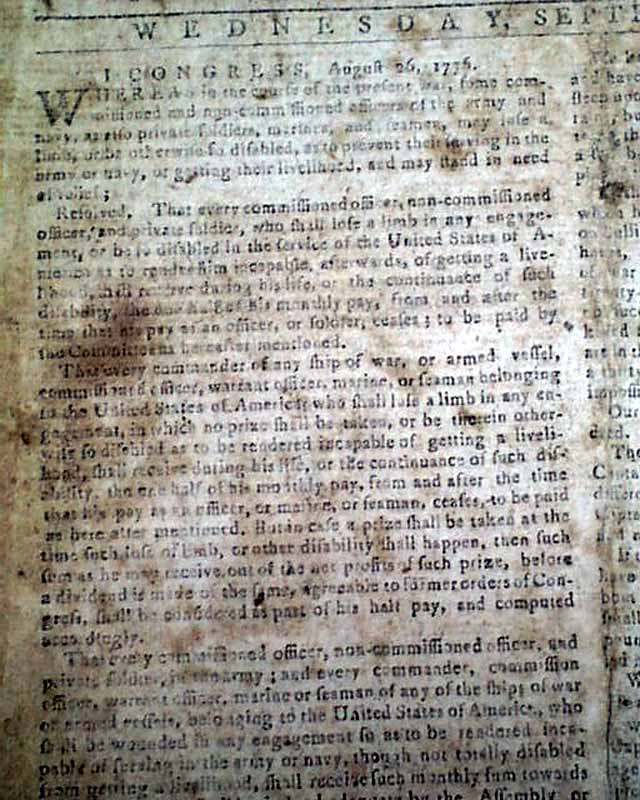 WEDNESDAY, SEPT
I CONGRESS, August 26, 1776.
WHEREAS in the course of the present war, some com-
missioned and non-commissioned officers of the army and
navy, as also private soldiers, marines, and seamen, may lose a
limb, or be otherwise so disabled, as to prevent their serving in the
army or navy, or getting their livelihood, and may stand in need
of relief;
Resolved, That every commissioned officer, non-commissioned
officer, and private soldier, who shall lose a limb in any engage-
ment, or be so disabled in the service of the United States of A-
merica as to render him incapable, afterwards, of getting a live-
lihood, shall receive during his life, or the continuance of such
disability, the one half of his monthly pay, from and after the
time that his pay as an officer, or soldier, ceases; to be paid by
the Committee as hereafter mentioned.
That every commander of any ship of war, or armed vessel,
commissioned officer, warrant officer, marine, or seaman belonging
to the United States of America, who shall lose a limb in any en-
gagement, in which no prize shall be taken, or be therein other-
wise so disabled as to be rendered incapable of getting a liveli-
hood, shall receive during his life, or the continuance of such dis-
ability, the one half of his monthly pay, from and after the time
that his pay as an officer, or marine, or seaman, ceases, to be paid
as here after mentioned. But in case a prize shall be taken at the
time such loss of limb, or other disability shall happen, then such
sum as he may receive out of the net profits of such prize, before
a dividend is made of the same, agreeable to former orders of Con-
gress, shall be considered as part of his half pay, and computed
accordingly.
That every commissioned officer, non-commissioned officer, and
private soldier, in the army; and every commander, commission
officer, warrant officer, marine or seaman of any of the ships of war
or armed vessels, belonging to the United States of America, who
shall be wounded in any engagement so as to be rendered inca-
pable of serving in the army or navy, though not totally disabled
from getting a livelihood, shall receive such monthly sum towards
by the Assembly or